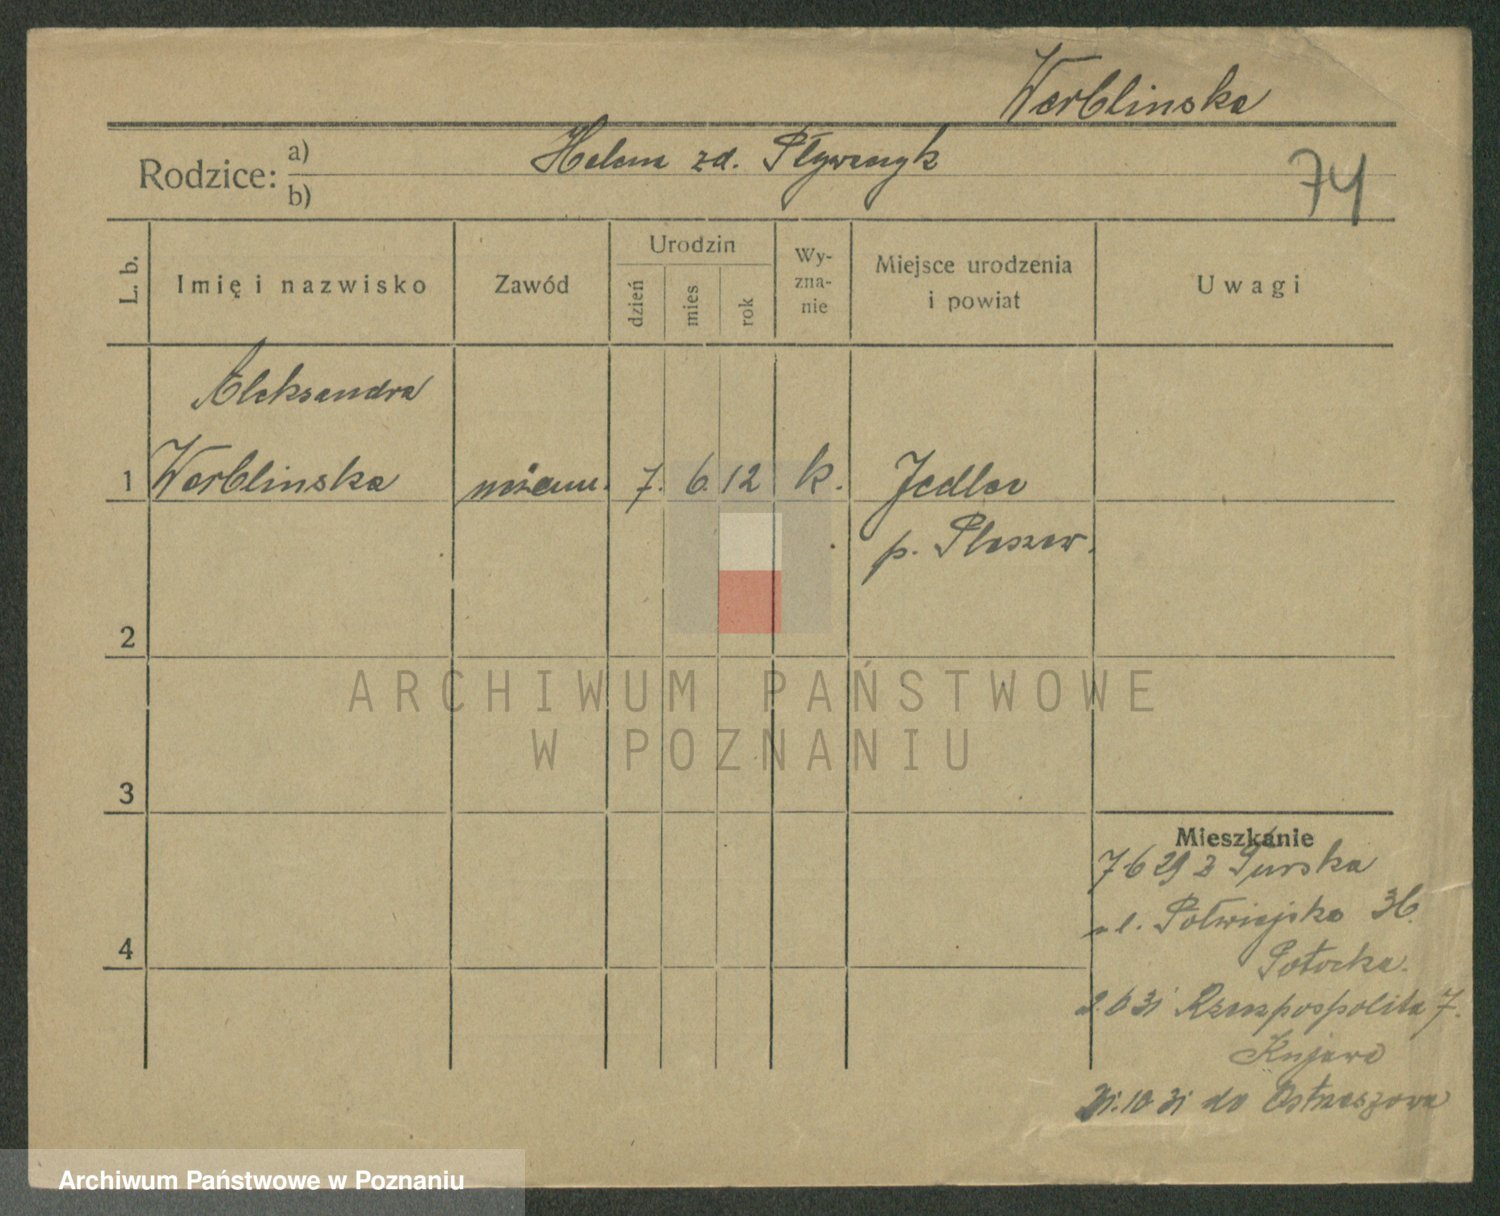 Werblinska
Rodzice: a) Helena zd. Pływaczyk
b)
74
L. b.
Imię i nazwisko
Zawód
Urodzin
dzień
mies
rok
Wy-
zna-
nie
Miejsce urodzenia
i powiat
Uwagi
Aleksandra
1 Werblinska 7. 6. 12 k. Jedlec
p. Pleszew.
2
3
4
Mieszkanie
7 6 29 z
ul. Półwiejska 36.
Potocka.
2. 6 31 Rzeczpospolita 7.
Kujawa
31. 10 31 do
ARCHIWUM PAŃSTWOWE
W POZNANIU
Archiwum Państwowe w Poznaniu